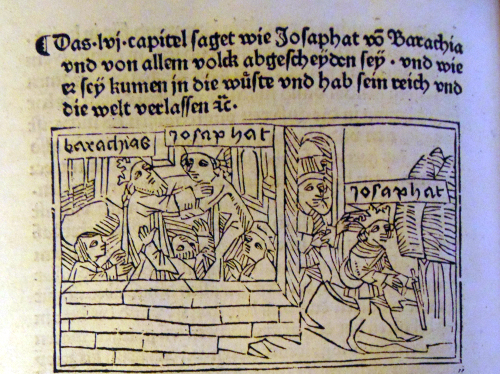 ⁋Das·lvj·capitel saget wie Josaphat vō Barachia
vnd von allem volck abgescheyden sey · vnd wie
er sey kumen in die wůste vnd hab sein reich vnd
die welt verlassen ꝛc̄·
barachias
josaphat
josaphat